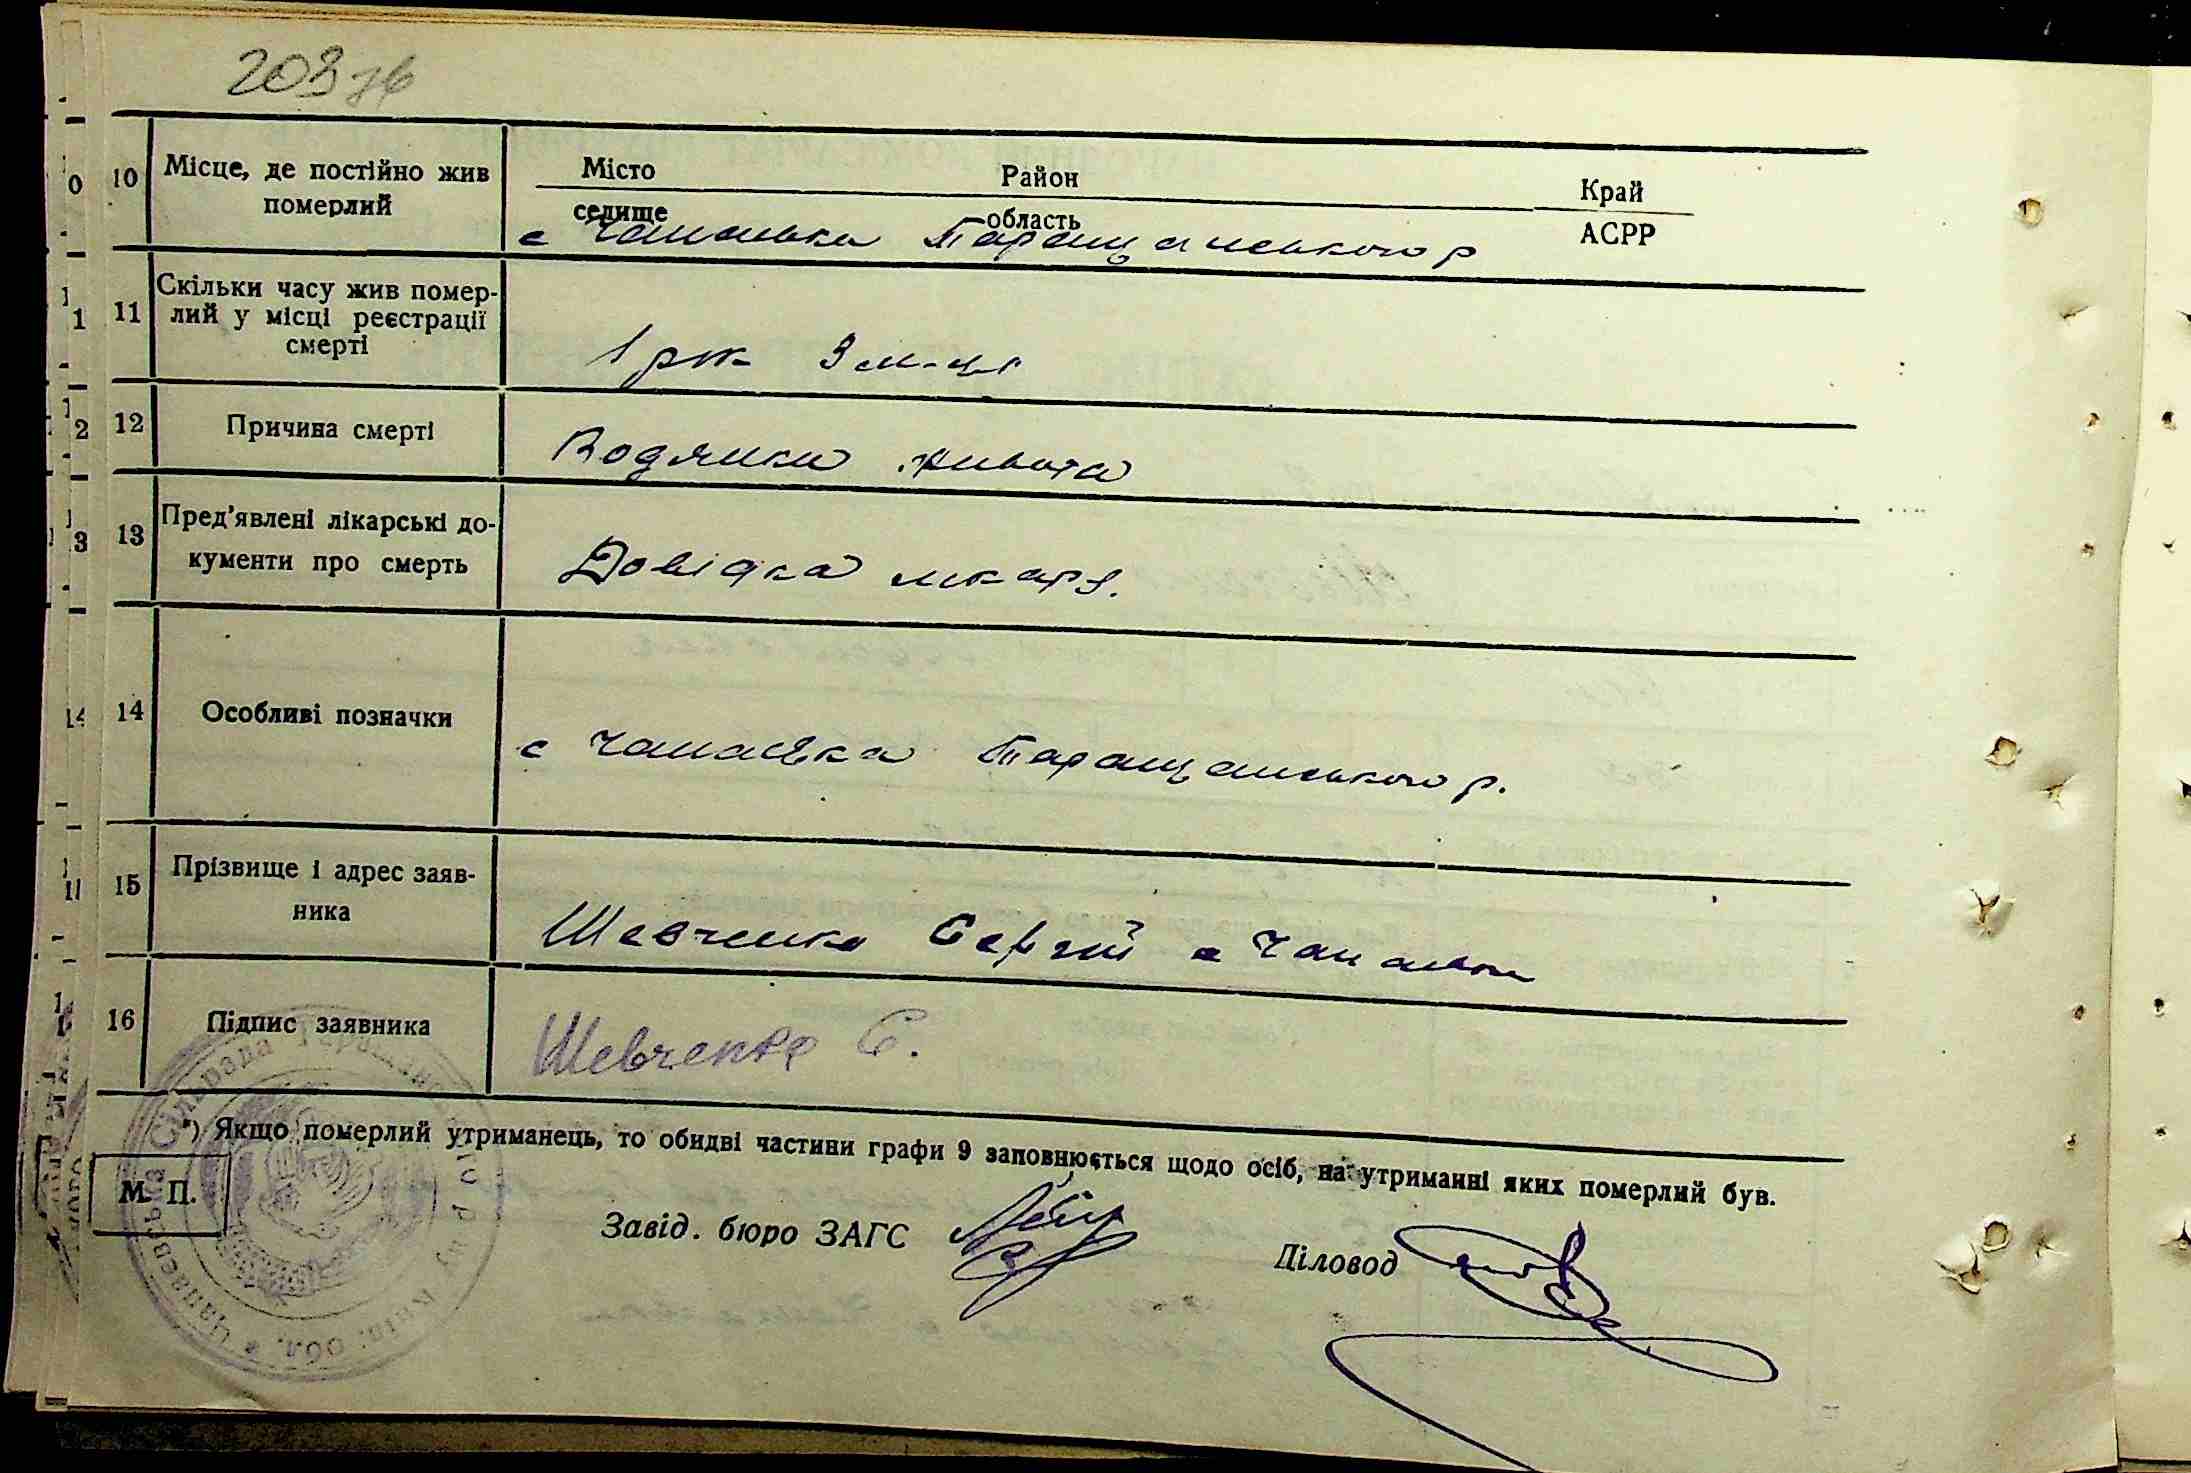 203
10
Місце, де постійно жив
померлий
Місто Район Край
селище область АСРР
с Чапаєвка Таращанського р
11
Скільки часу жив помер-
лий у місці реєстрації
смерті
1 рік 3 м-ці
12
Причина смерті
Водянка живота
13
Пред'явлені лікарські до-
кументи про смерть
Довідка лікаря.
14
Особливі позначки
с Чапаєвка Таращанського р.
15
Прізвище і адрес заяв-
ника
Шевченко Сергій с Чапаєвка
16
Підпис заявника
Шевченко С.
*) Якщо померлий утриманець, то обидві частини графи 9 заповнюється щодо осіб, на утриманні яких померлий був.
М. П.
Завід. бюро ЗАГС
Діловод
Чапаєвська Сільрада Таращанського р-ну Київ. обл. *